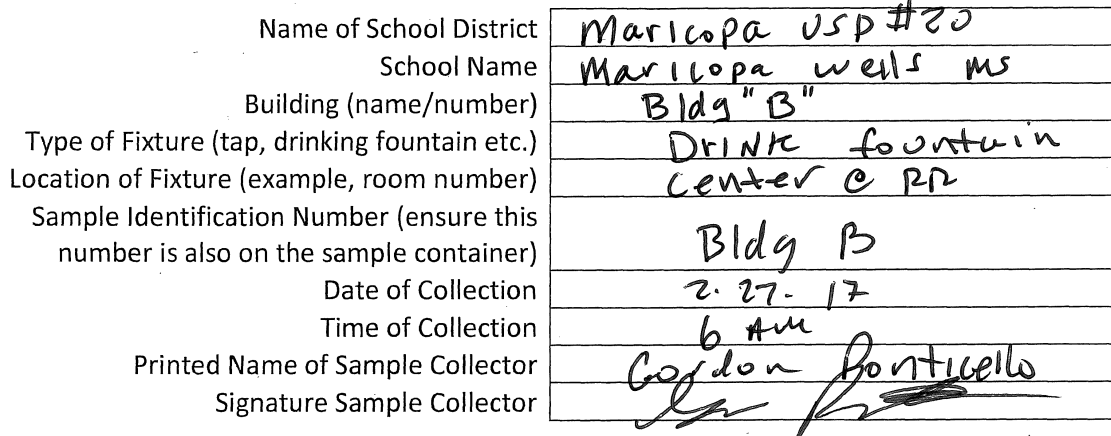 Name of School District Maricopa USD #20
School Name Maricopa wells MS
Building (name/number) Bldg "B"
Type of Fixture (tap, drinking fountain etc.) Drink fountain
Location of Fixture (example, room number) Center @ RR
Sample Identification Number (ensure this
number is also on the sample container) Bldg B
Date of Collection 2.27.17
Time of Collection 6 AM
Printed Name of Sample Collector Gordon Ponticello
Signature Sample Collector